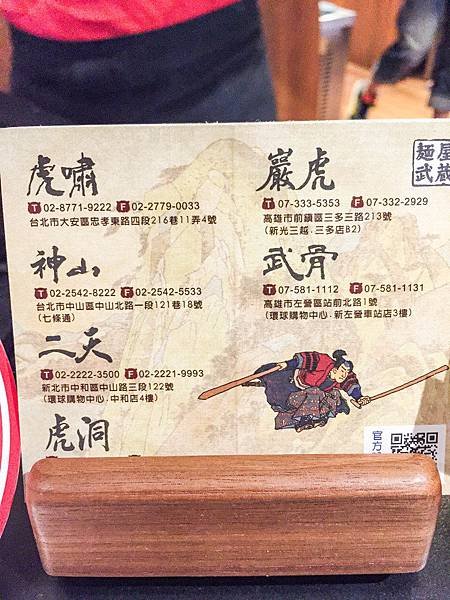 虎嘯
T 02-8771-9222 F 02-2779-0033
台北市大安區忠孝東路四段216巷11弄4號
神山
T 02-2542-8222 F 02-2542-5533
台北市中山區中山北路一段121巷18號
(七條通)
二天
T 02-2222-3500 F 02-2221-9993
新北市中和區中山路三段122號
(環球購物中心.中和店4樓)
虎洞
巖虎
T 07-333-5353 F 07-332-2929
高雄市前鎮區三多三路213號
(新光三越.三多店B2)
武骨
T 07-581-1112 F 07-581-1131
高雄市左營區站前北路1號
(環球購物中心.新左營車站店3樓)
麵屋
武蔵
官方